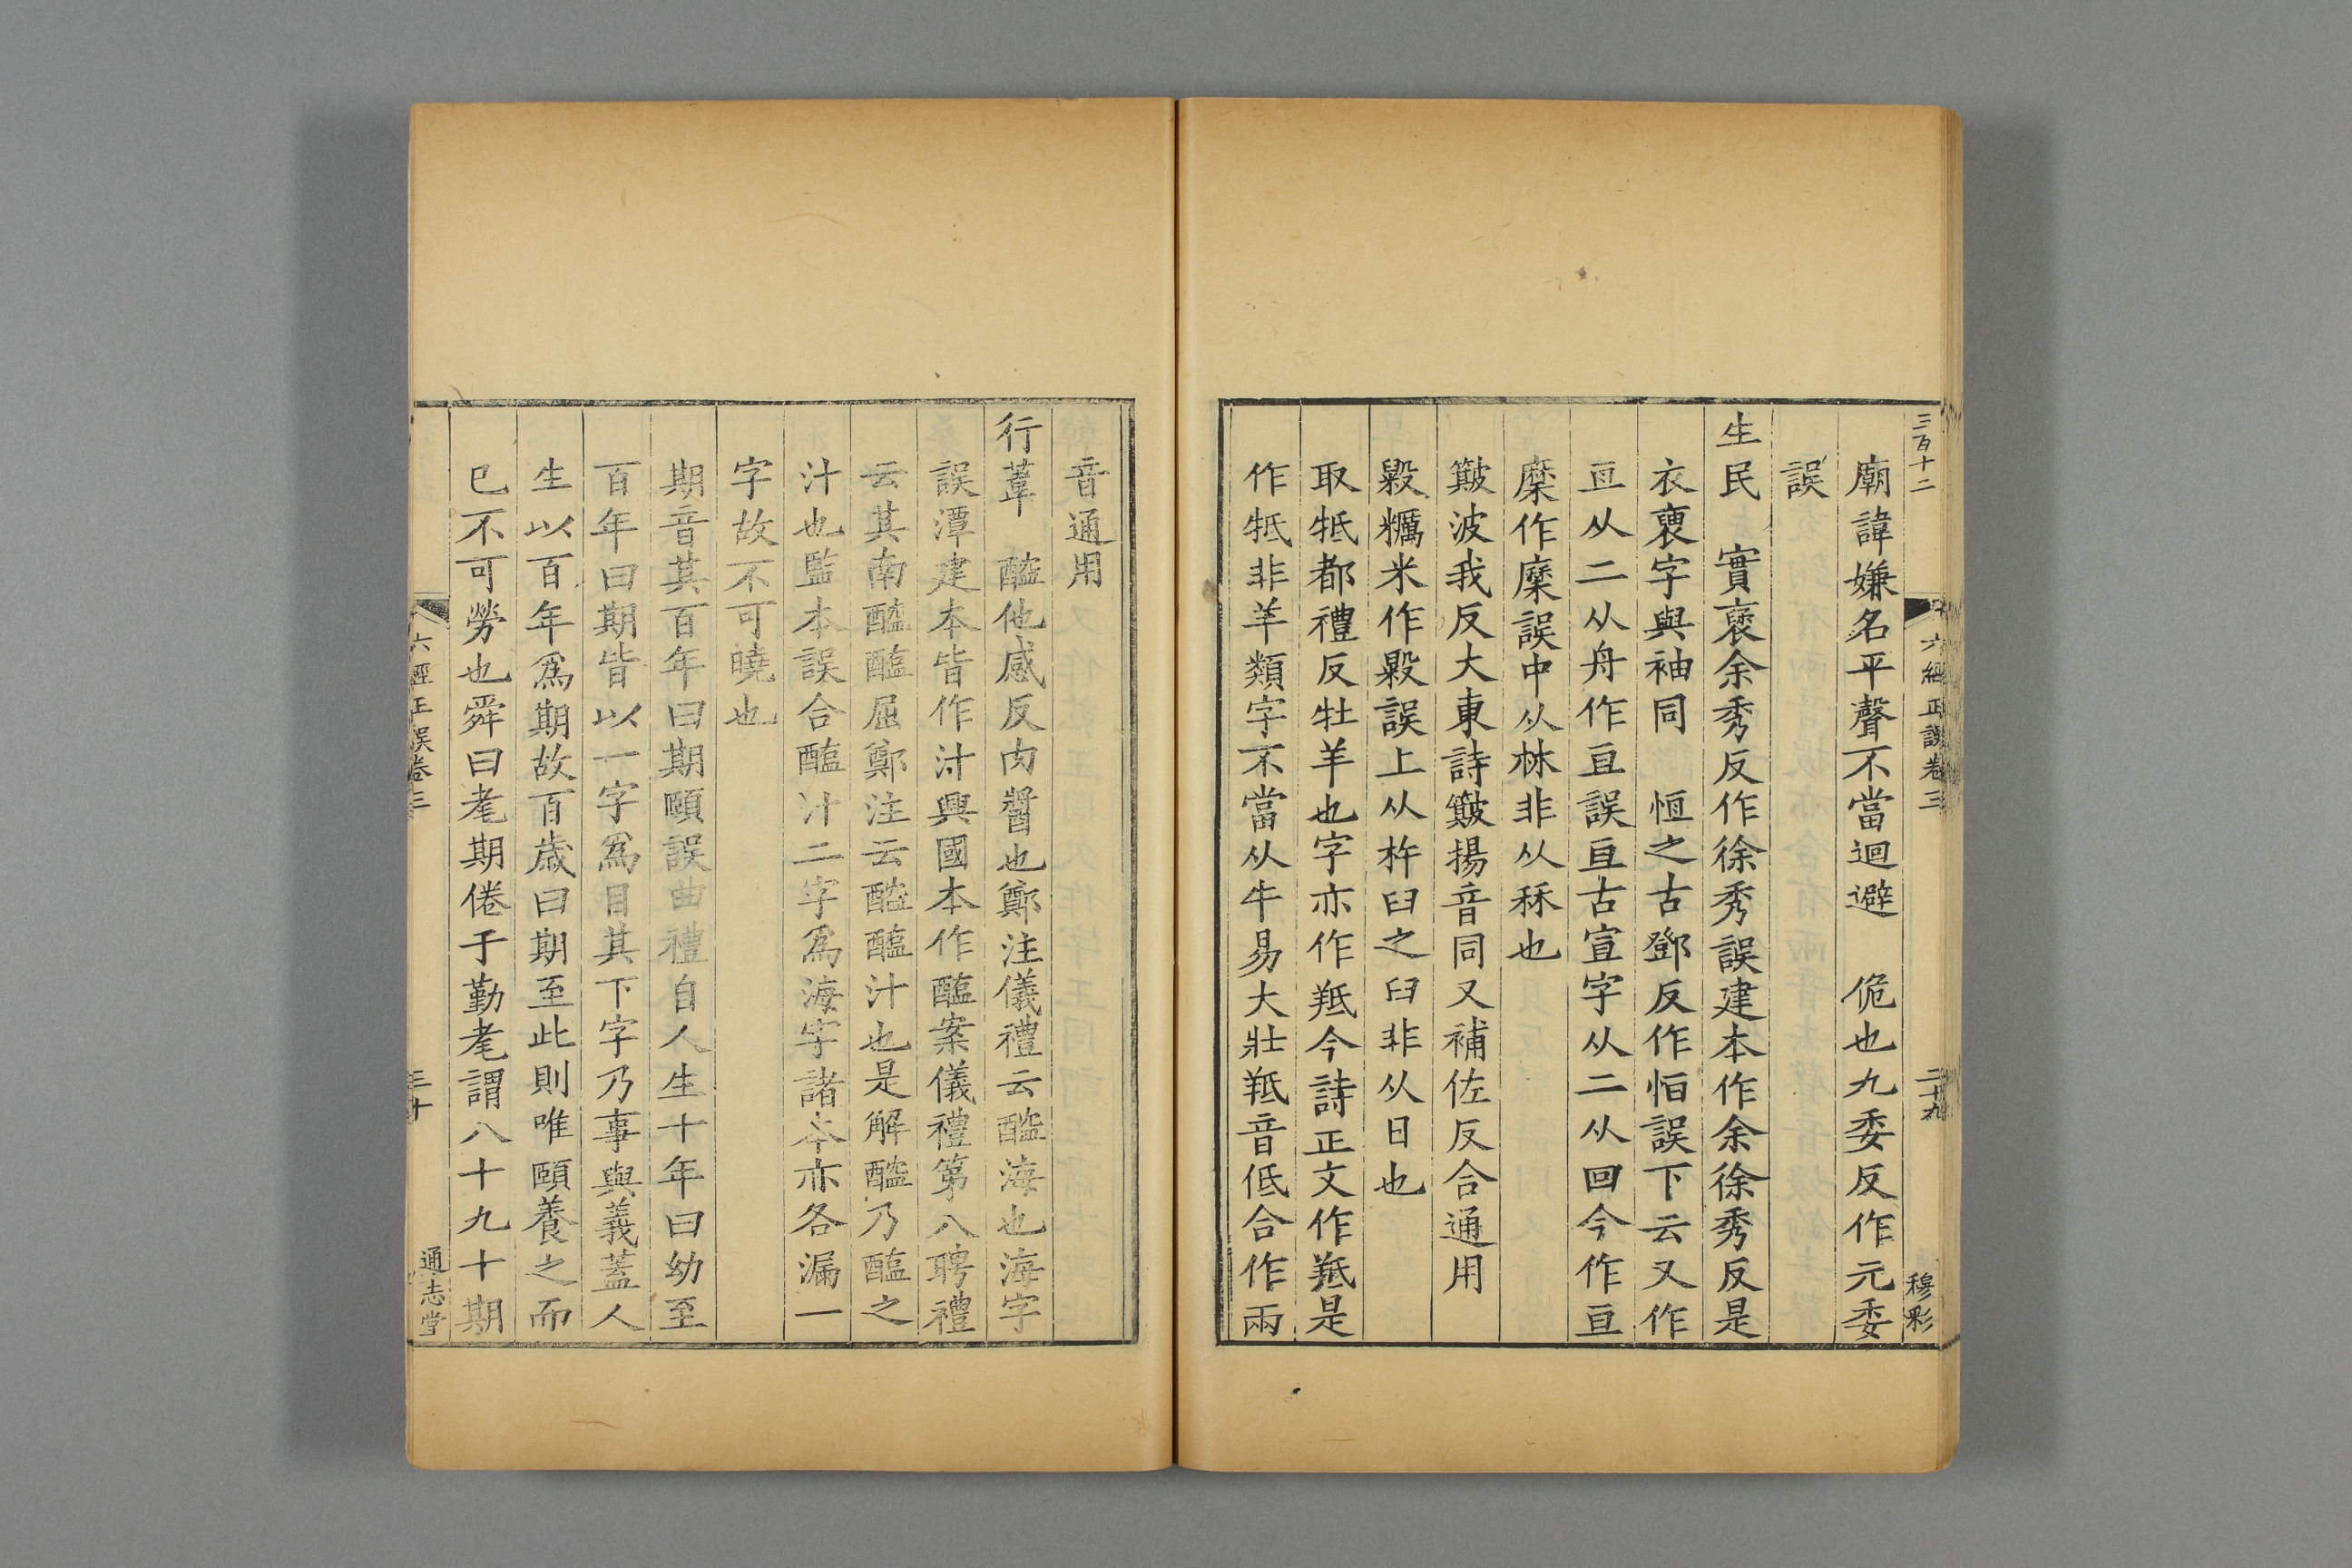 三百十二
六經正誤卷三
二十九
穆彩
廟諱嫌名平聲不當迴避 佹也九委反作元委
誤
生民 實褎余秀反作徐秀誤建本作余徐秀反是
衣褏字與袖同 恒之古鄧反作怛誤下云又作
亘从二从舟作亘誤亘古宣字从二从回今作亘
穈作糜誤中从林非从秝也
簸波我反大東詩簸揚音同又補佐反合通用
毇糲米作毇誤上从杵臼之臼非从日也
取牴都禮反牡羊也字亦作羝今詩正文作羝是
作牴非羊類字不當从牛易大壯羝音低合作兩
音通用
行葦 醓他感反肉醬也鄭注儀禮云醓海也海字
誤潭建本皆作汁興國本作醢案儀禮第八聘禮
云其南醓醢屈鄭注云醓醢汁也是解醓乃醢之
汁也監本誤合醢汁二字爲海字諸本亦各漏一
字故不可曉也
期音其百年曰期頤誤曲禮自人生十年曰幼至
百年曰期皆以一字爲目其下字乃事與義蓋人
生以百年爲期故百歲曰期至此則唯頤養之而
已不可勞也舜曰耄期倦于勤耄謂八十九十期
六經正誤卷三
三十
通志堂